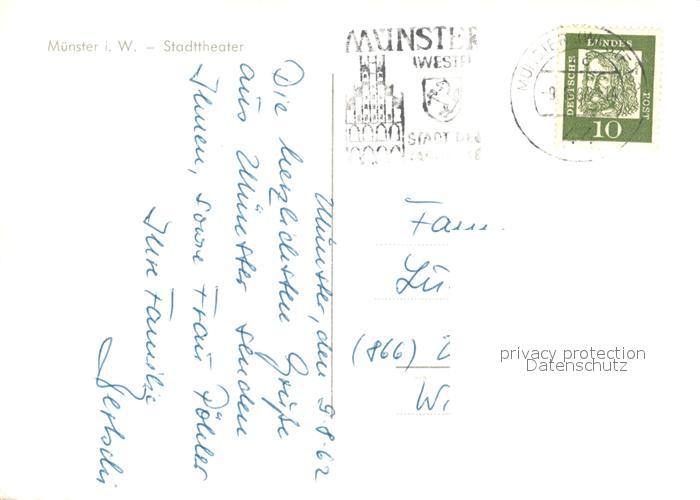 Münster i. W. – Stadttheater
Münster, den 9.8.62
Die herzlichsten Grüße
aus Münster senden
Ihnen, sowie Frau Pöhler
Ihre Familie
MÜNSTER
(WESTF)
STADT DES
DEUTSCHE BUNDESPOST
10
Fam.
(866)
privacy protection
Datenschutz